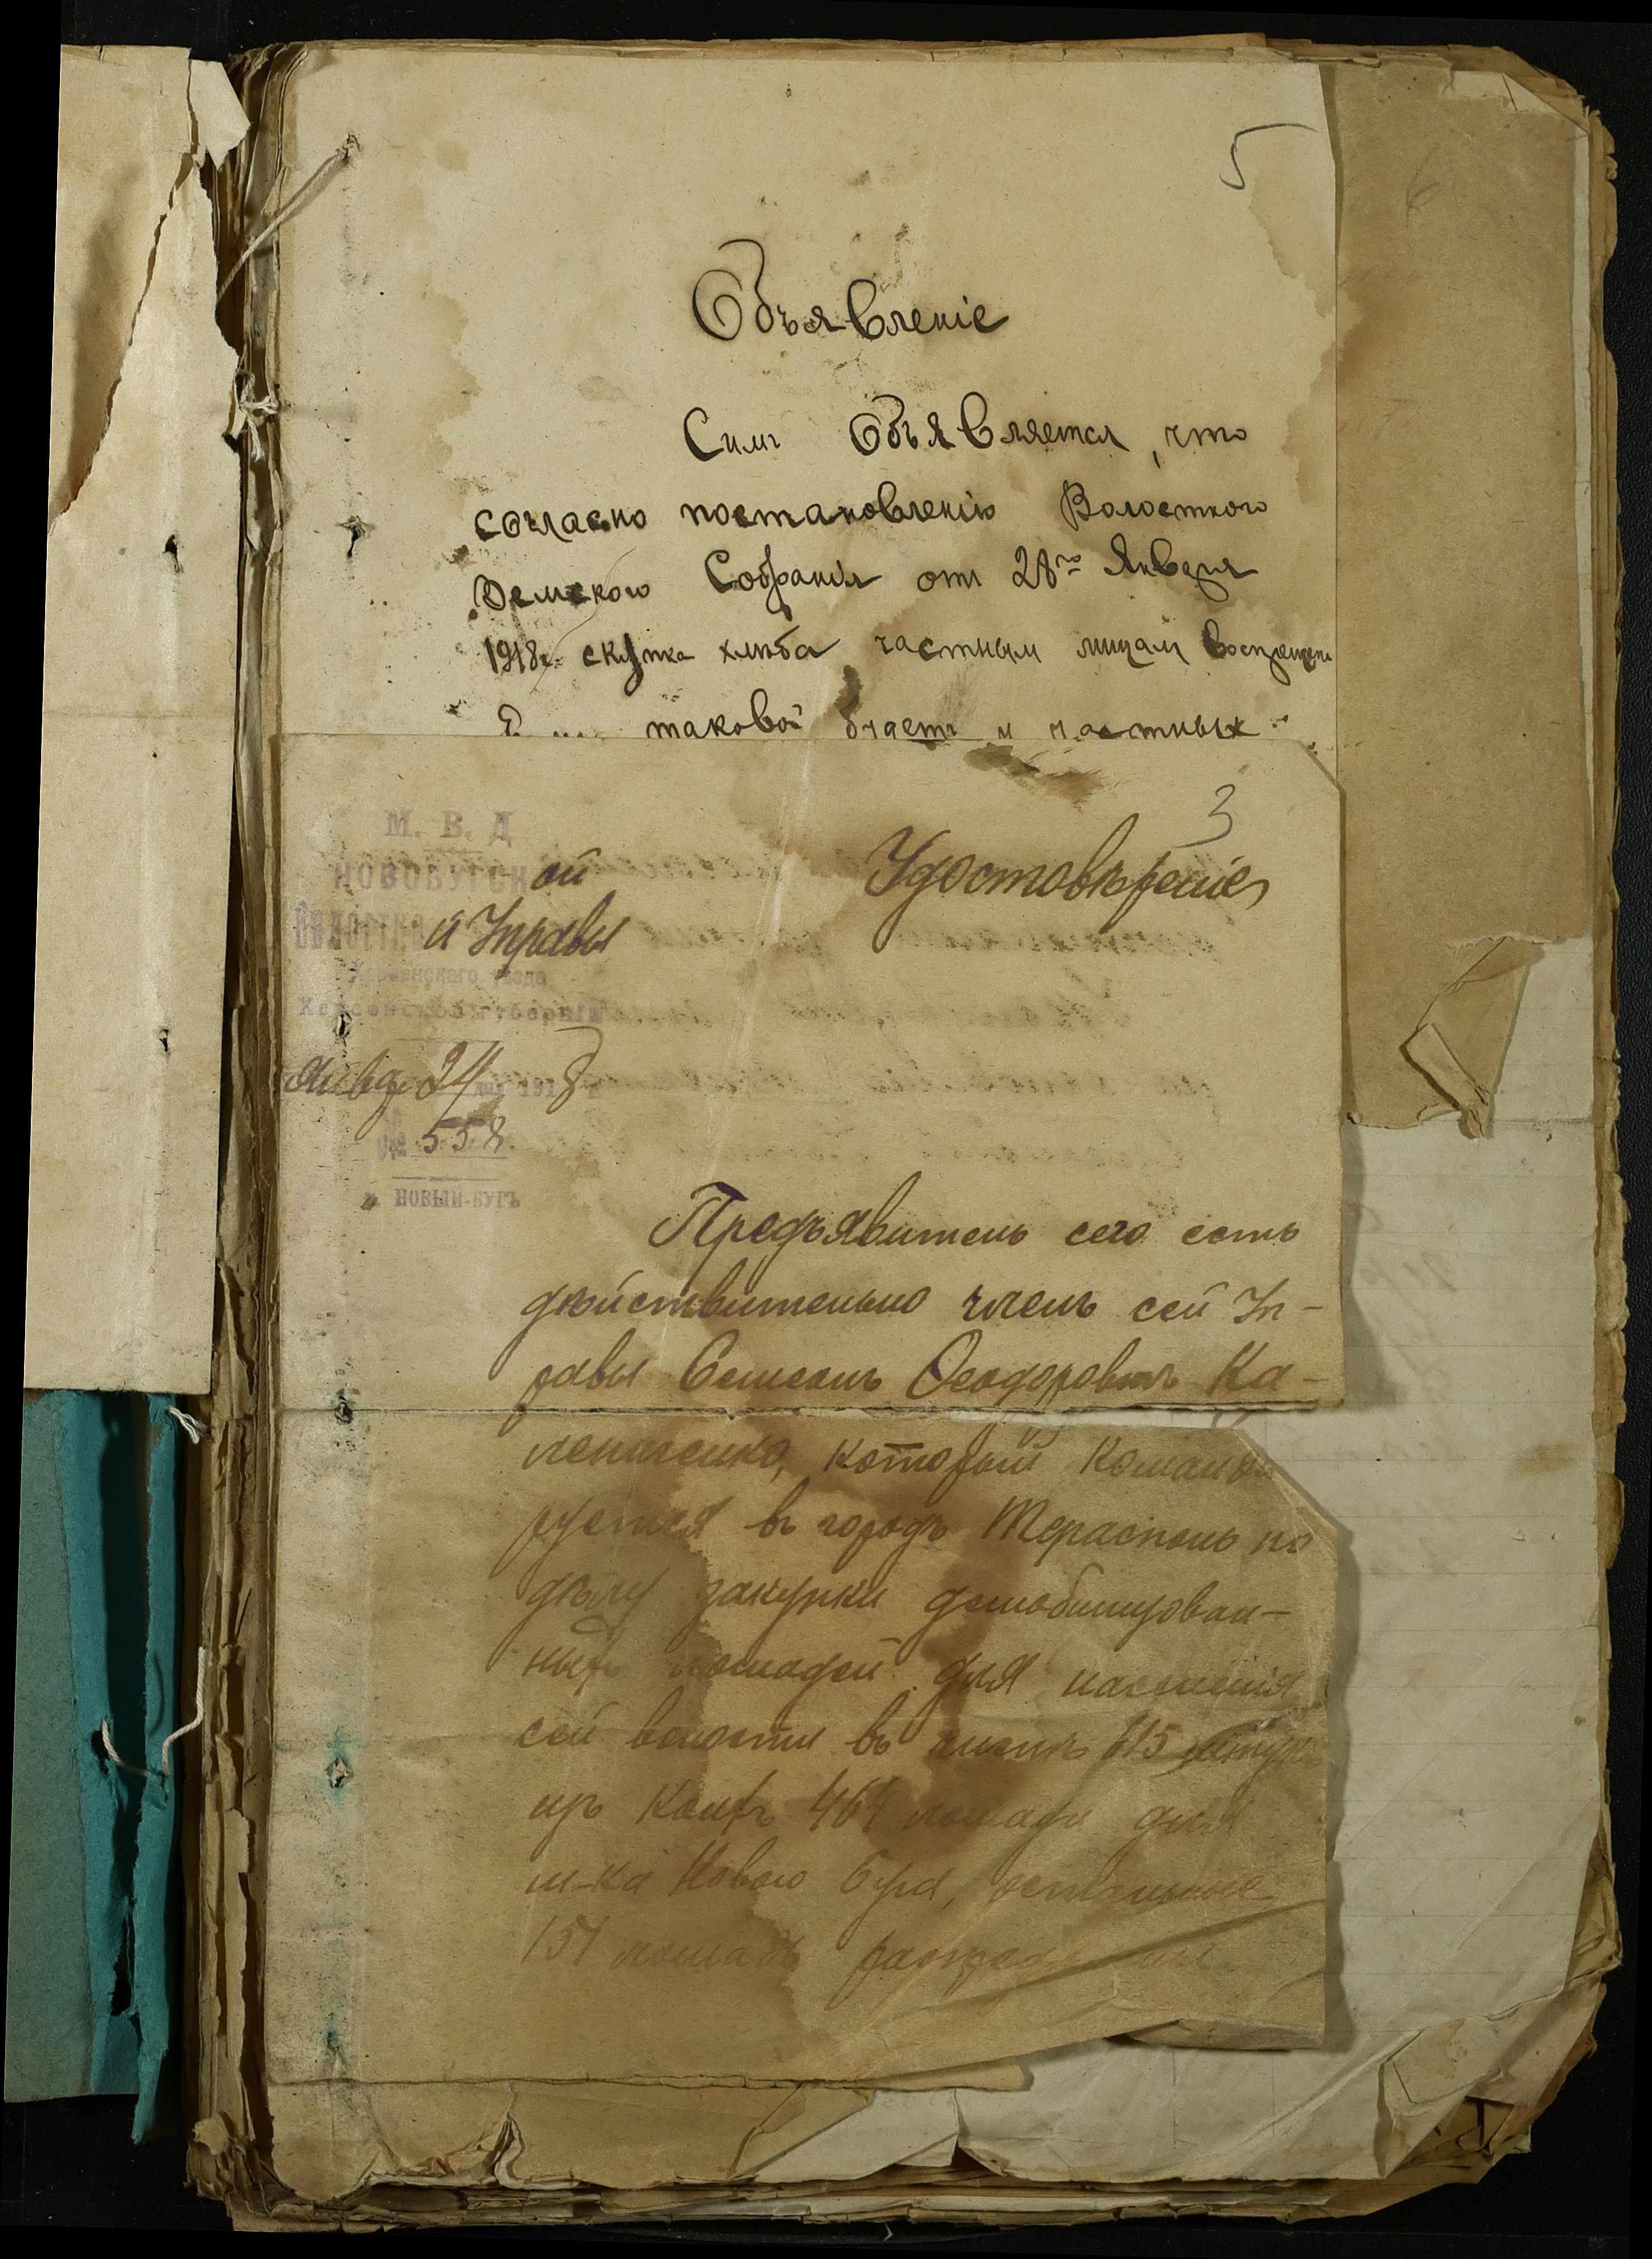 5
6
Объявленіе
Симъ Объявляется, что
согласно постановленію Волостного
Земского Собранія отъ 28го Января
1918г. скупка хлѣба частным лицам воспрещена
таковой будетъ у частных
3
М. В. Д
НОВОБУГСКой
Волостной Управы
Херсонскаго уѣзда
Херсонской губерніи
Январ 24 дня 1918 г
№ 558.
м. НОВЫЙ-БУГЪ
Удостовѣреніе
Предъявитель сего есть
дѣйствительно членъ сей Уп-
равы Семенъ Ѳеодоровичъ Ка-
лениченко, который команди
руется въ городъ Тераспољ по
дѣлу закупки демобилизован-
ныхъ лошадей для населенія
сей волости въ числѣ 615 штукъ
изъ коихъ 464 лошади для
м-ка Новаго Буга, остальные
151 лошадь